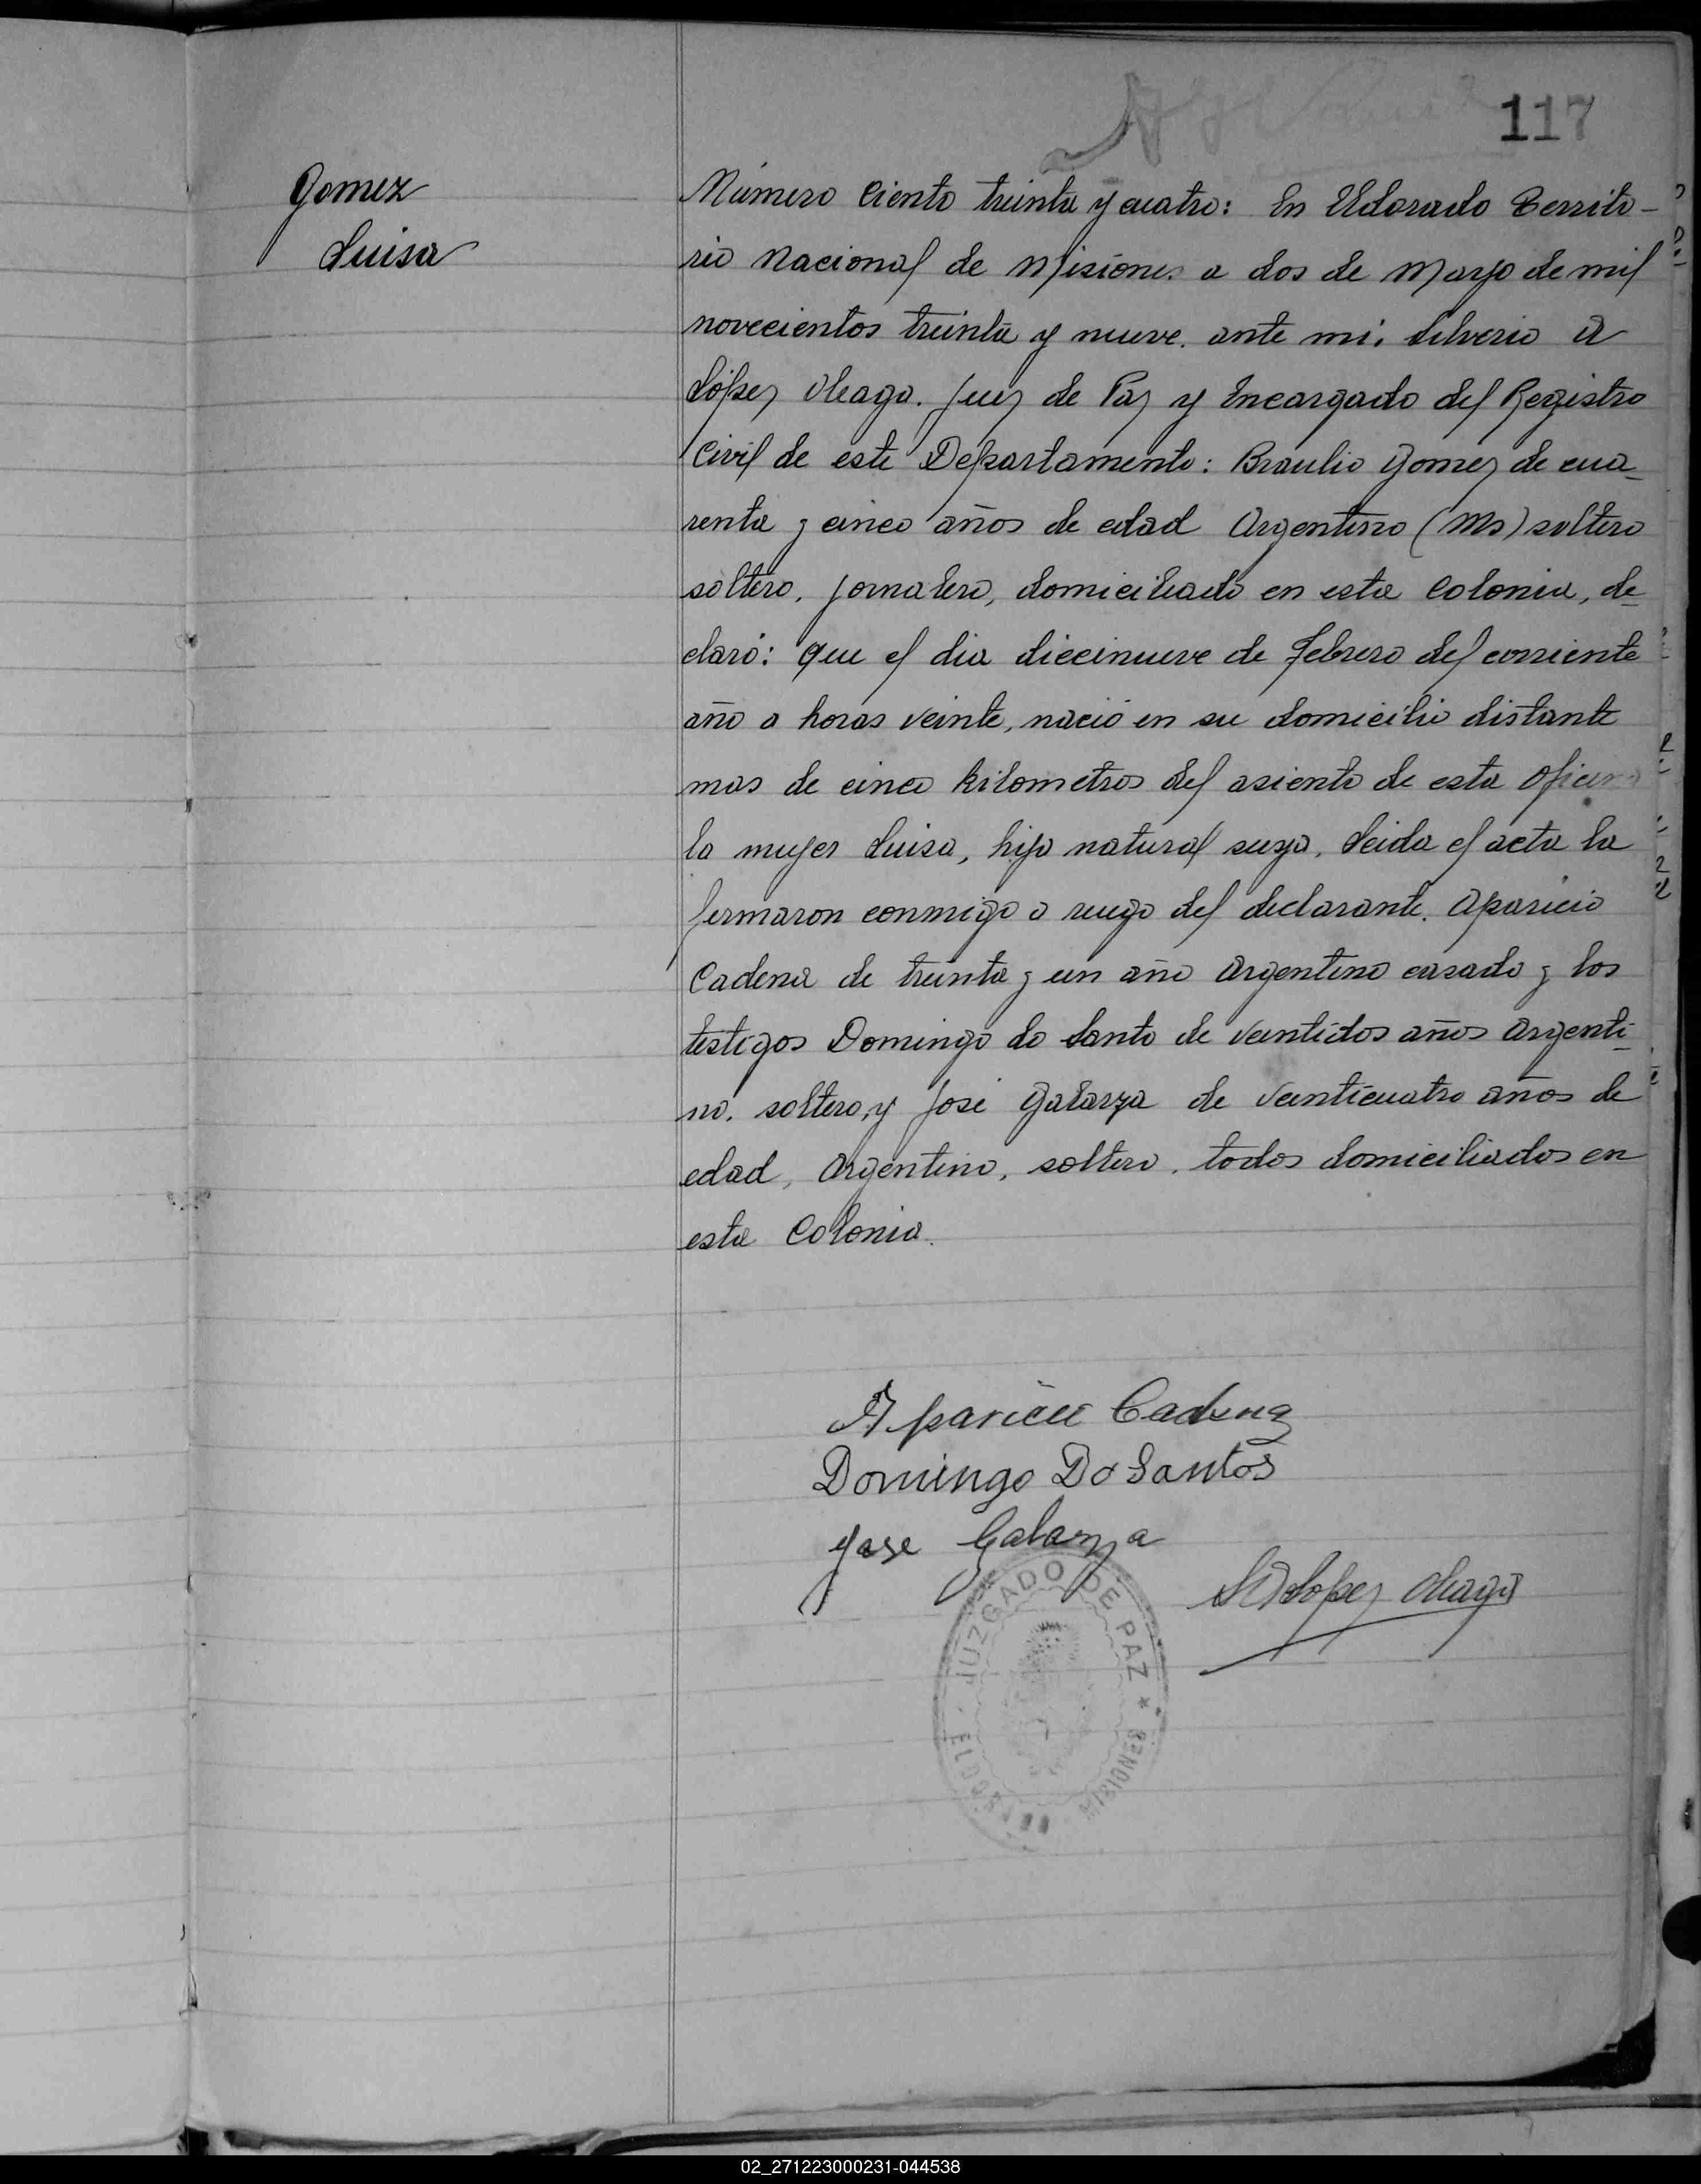 117
Gomez
Luisa
Número Ciento treinta y cuatro: En Eldorado Territo-
rio Nacional de Misiones a dos de Mayo de mil
novecientos treinta y nueve. ante mi. Silverio A
López Oleaga. Juez de Paz y Encargado del Registro
Civil de este Departamento: Braulio Gomez de cua-
renta y cinco años de edad Argentino (Ms) soltero
soltero, jornalero, domiciliado en esta Colonia, de-
claró: que el dia diecinueve de Febrero del corriente
año a horas veinte, nació en su domicilio distante
mas de cinco kilometros del asiento de esta Oficina
la mujer Luisa, hija natural suya. Leida el acta la
firmaron conmigo a ruego del declarante. Aparicio
Cadena de treinta y un año Argentino casado y los
testigos Domingo do Santo de veintidos años argenti-
no. soltero, y José Galarza de veinticuatro años de
edad, Argentino, soltero. todos domiciliados en
esta Colonia.
Aparicio Cadena
Domingo Do Santos
Jose Galarza
SA López Oleaga
JUZGADO DE PAZ * MISIONES
ELDORADO
02_271223000231-044538